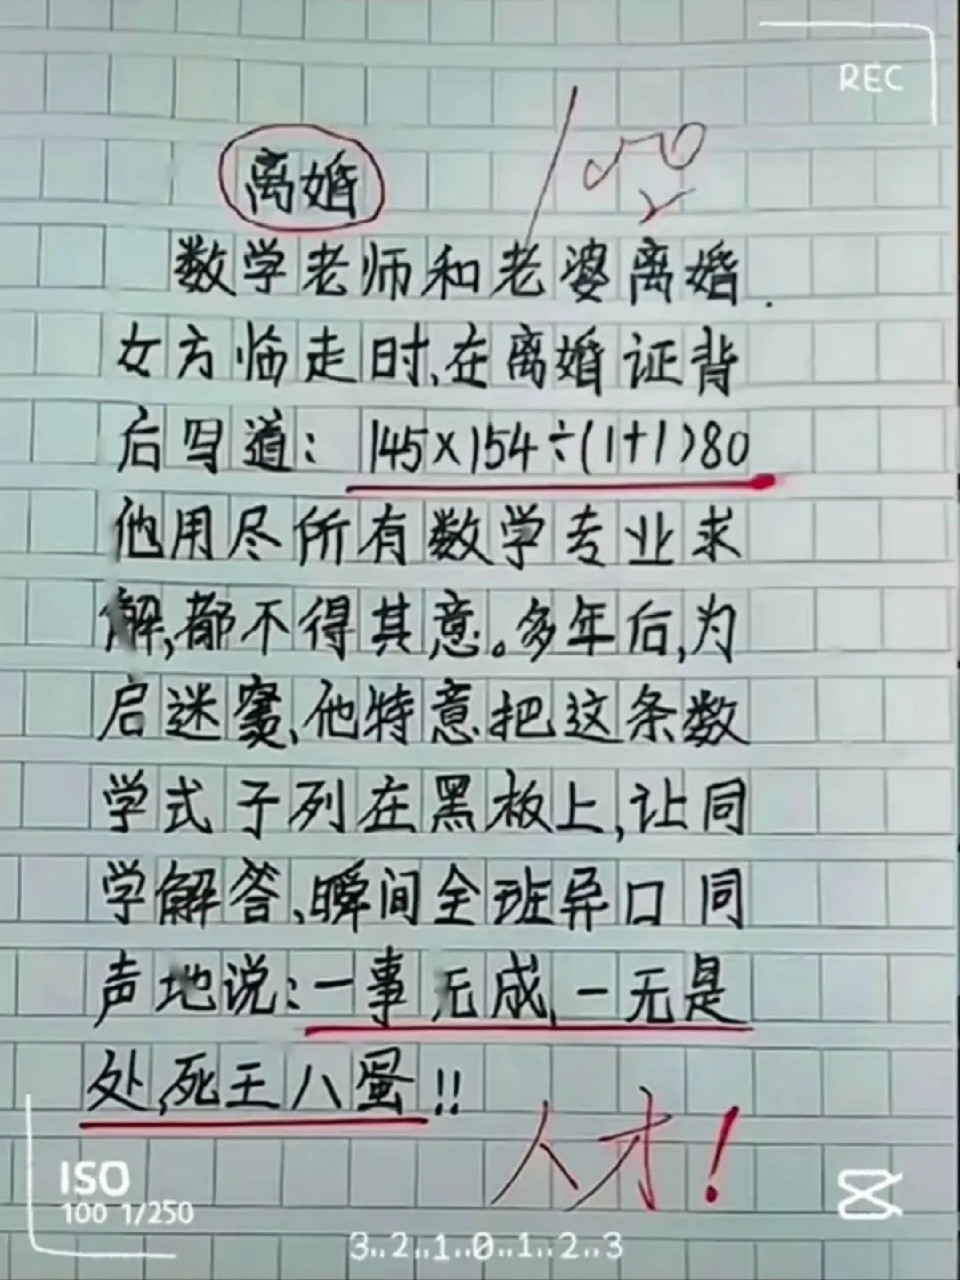 REC
离婚
100
数学老师和老婆离婚.
女方临走时,在离婚证背
后写道:145×154÷(1+1)80
他用尽所有数学专业求
解,都不得其意。多年后,为
启迷窦,他特意把这条数
学式子列在黑板上,让同
学解答,瞬间全班异口同
声地说:一事无成,一无是
处,死王八蛋!!
人才!
ISO
100 1/250
3..2..1..0..1..2..3